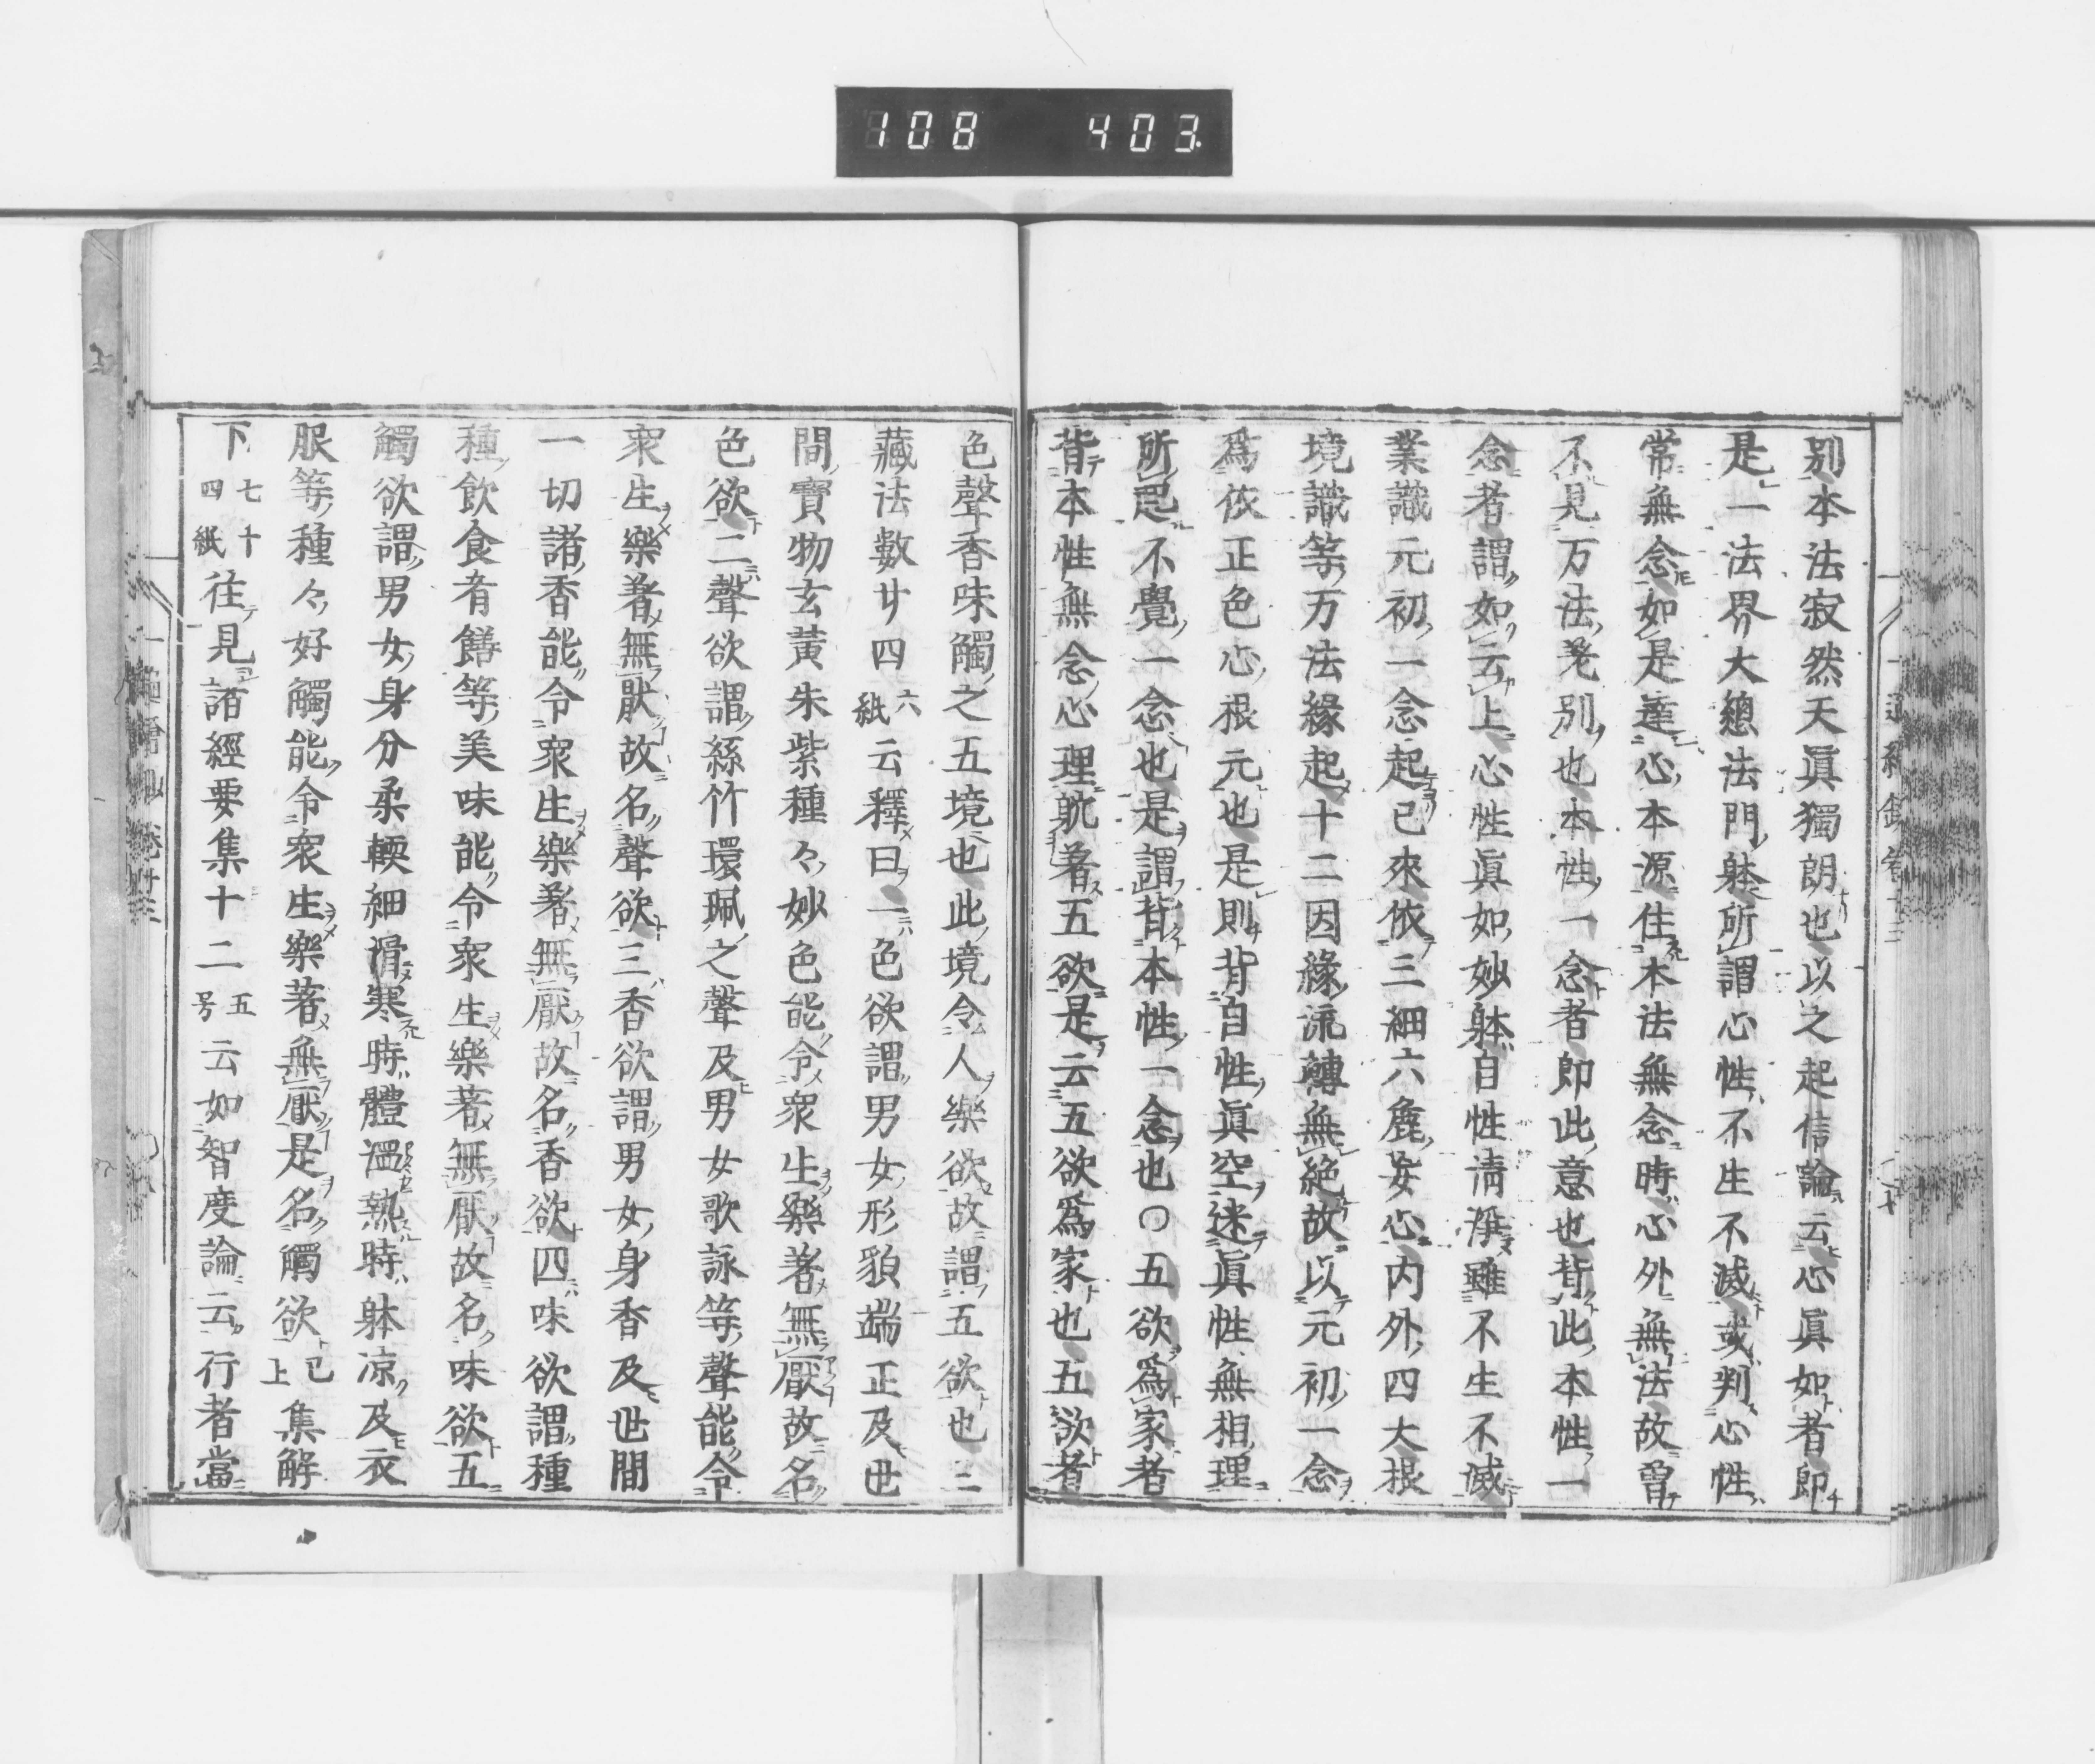 108 403
別本法寂然天眞獨朗也以之起信論云心眞如者即
是一法界大總法門躰所謂心性不生不滅或判心性
常無念如是達心本源住本法無念時心外無法故曾
不見万法差別也本性一念者即此意也背此本性一
念者謂如云上心性眞如妙躰自性淸淨雖不生不滅
業識元初一念起已來依三細六麁妄心内外四大根
境識等万法緣起十二因緣流轉無絶故以元初一念
爲依正色心根元也是則背自性眞空迷眞性無相理
所起不覺一念也是謂背本性一念也〇五欲爲家者
背本性無念心理躭著五欲是云五欲爲家也五欲者
色聲香味觸之五境也此境令人樂欲故謂五欲也三
藏法數廿四六紙云釋曰一色欲謂男女形貌端正及世
間寶物玄黃朱紫種々妙色能令衆生樂著無厭故名
色欲二聲欲謂絲竹環珮之聲及男女歌詠等聲能令
衆生樂著無厭故名聲欲三香欲謂男女身香及世間
一切諸香能令衆生樂著無厭故名香欲四味欲謂種
種飲食肴饍等美味能令衆生樂著無厭故名味欲五
觸欲謂男女身分柔輭細滑寒時體溫熱時躰凉及衣
服等種々好觸能令衆生樂著無厭是名觸欲已上集解
下七十四紙往見諸經要集十二五号云如智度論云行者當